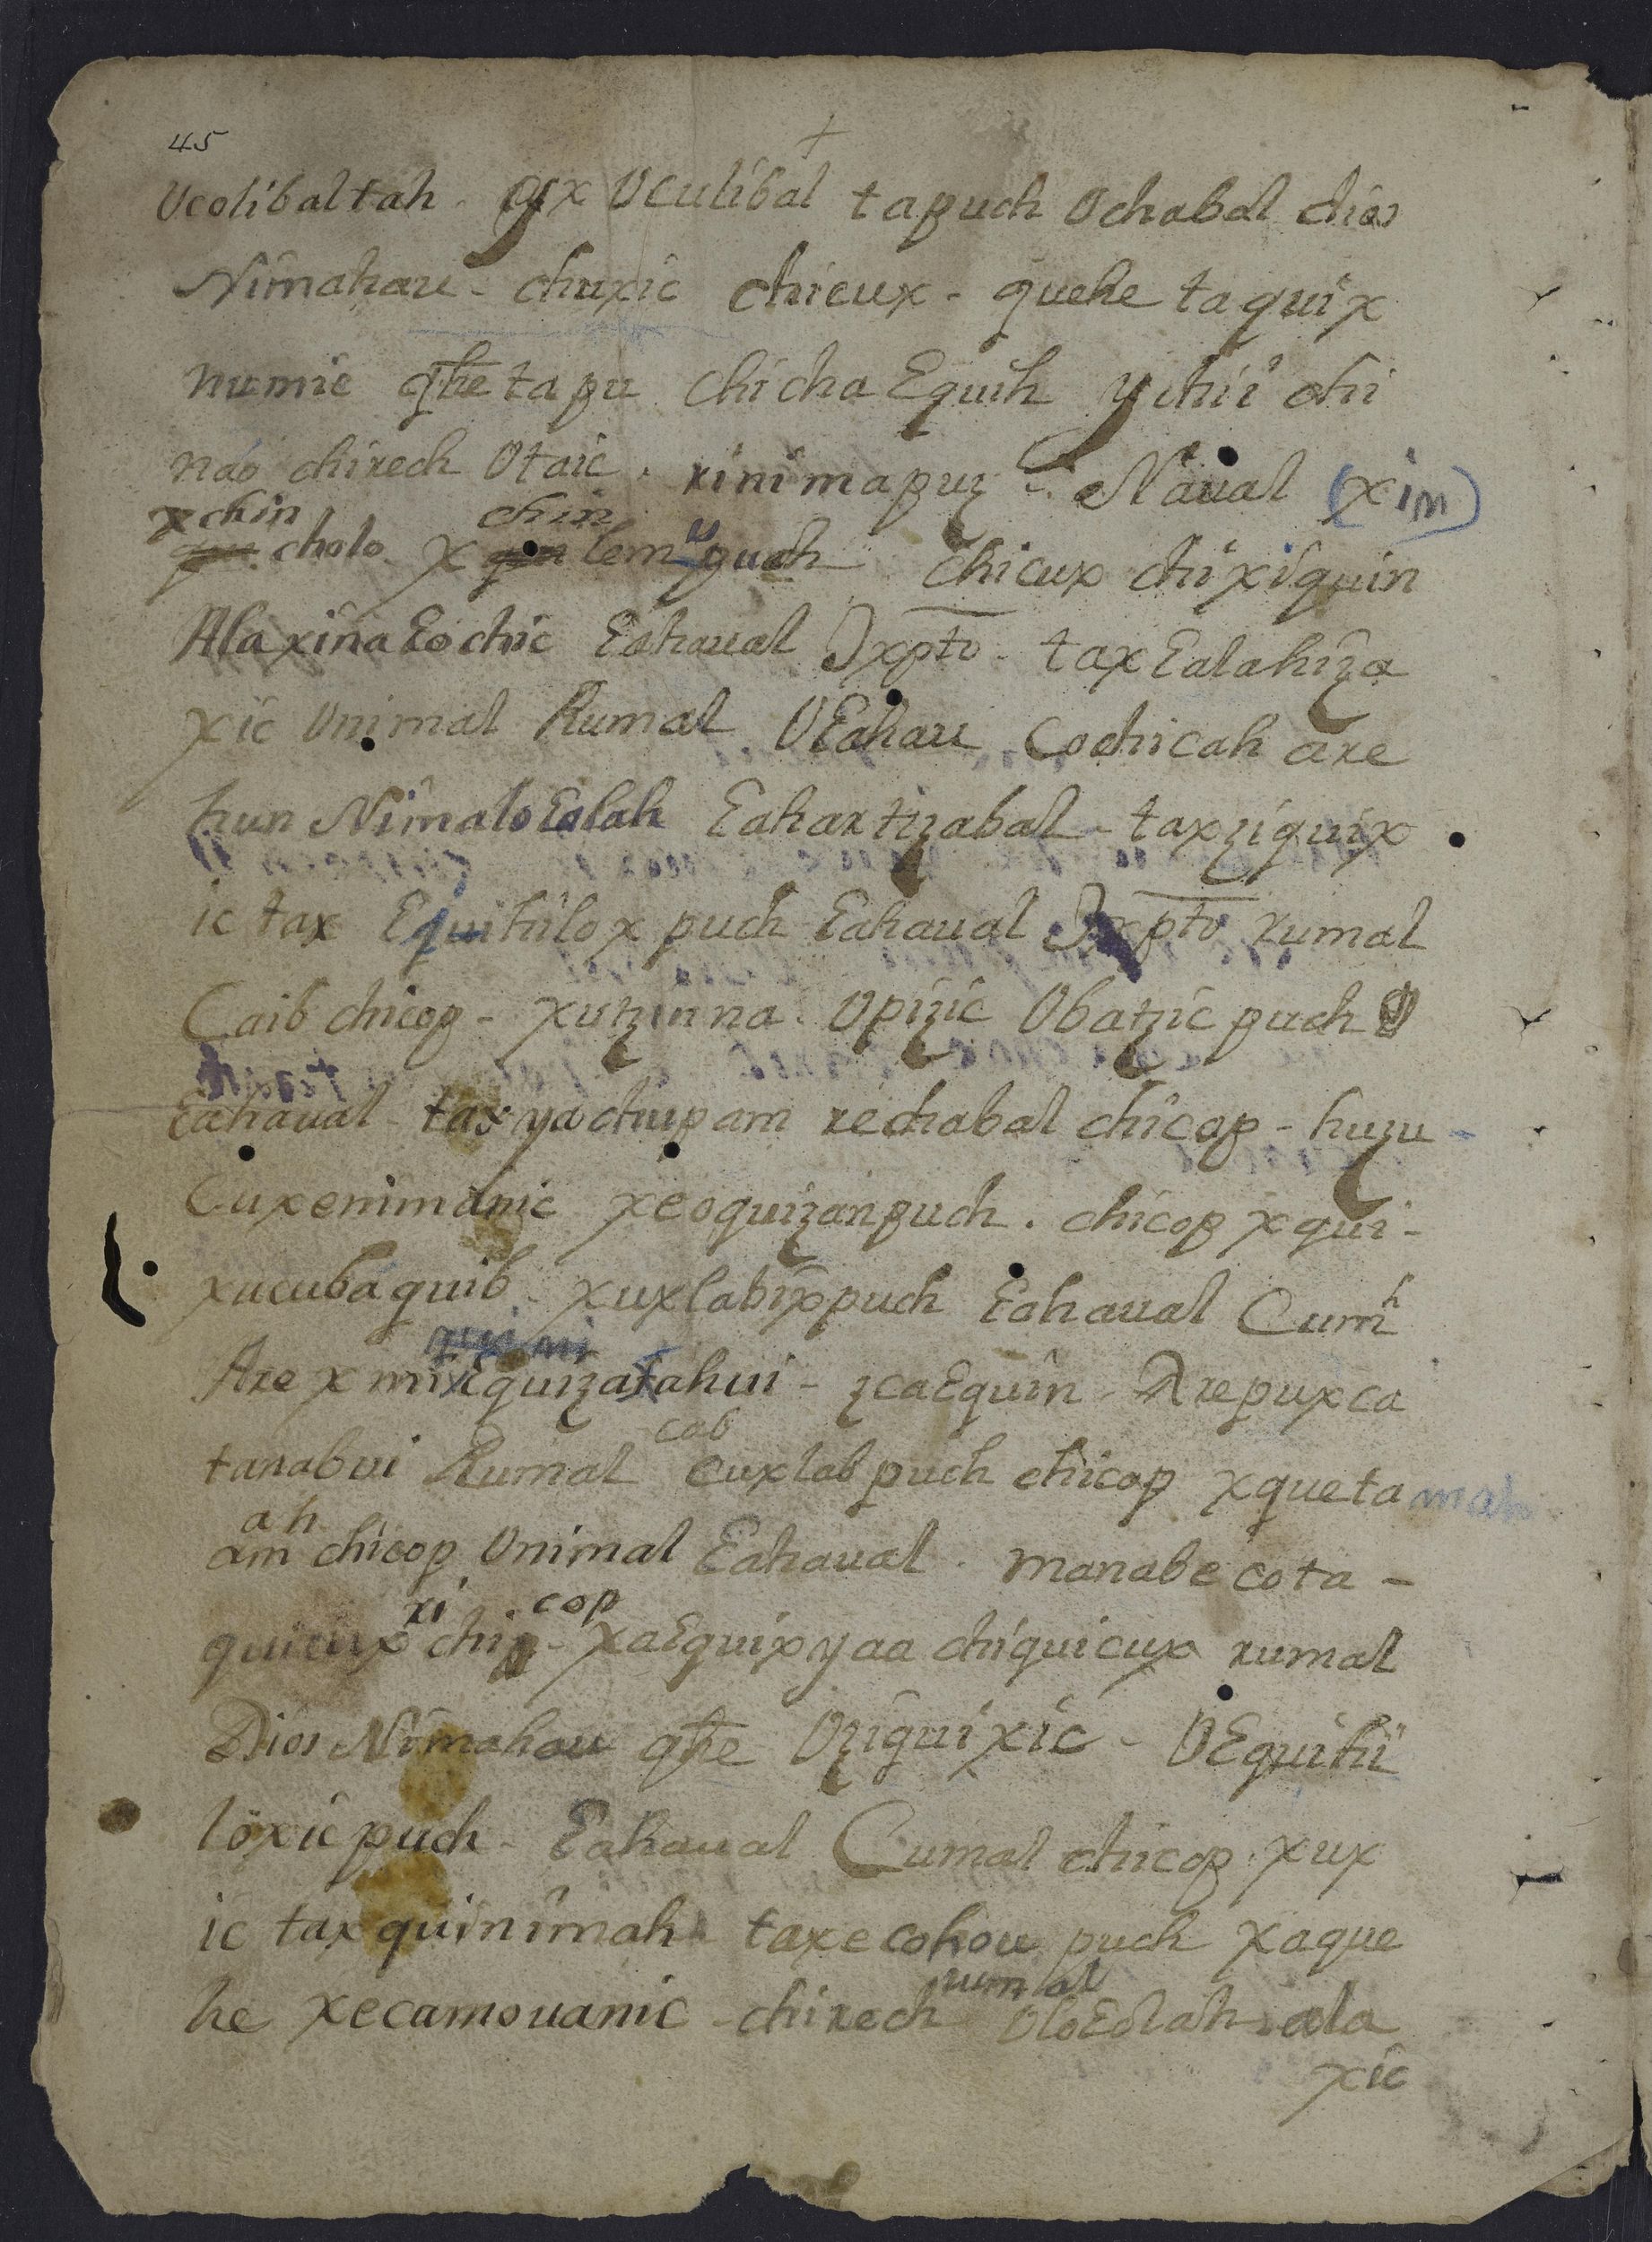 45
+
Vcolibaltah - yx Vculibal tapuch Vchabal dios
Nimahau - chuxic chicux - quehe taquix
numic q̃he tapu chicha Equih ychii chi
nao chirech Otaic . rinimapuz - Naual (xin)
xchin chin
cholo x lem u puch chicux chixiquin
AlaxinaEochic Eahaual Jxpto - taxEalahiza
xic Vnimal Rumal VEahau cochicah are
hun NimaloEolah Eahartizabal - taxziquix
ic tax Equihilox puch Eahaual Jxpto rumal
Caib chicop - xutzinna Vpizic Vbatzic puch
Eahaual - taxya chupam rechabal chicop - huzu -
Cuxenimanic xeoquizanpuch . chicop xqui -
xucubaquib - xuxlabixpuch Eahaual Cumh
Are x mixEquizatahui - zcaEquin - Arepuxca
cab
tanabui Rumal cuxlab puch chicop xquetamah
ah
am chicop Vnimal Eahaual . manabe cota -
xi cop
quicux chi - xaEquixyaa chiquicux rumal
Dios Nimahau q̃he Vziquixic - VEquihi
loxic puch - Eahaual Cumal chicop . xux
ic taxquinimah taxecohou puch xaque
rumal
he xecamouanic - chirech VloEolah ala
xic